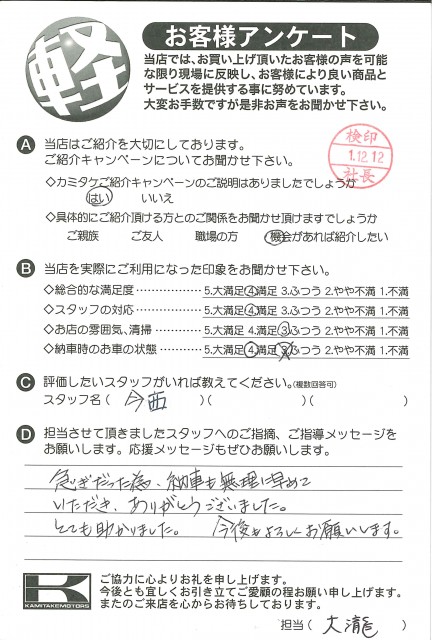 軽
お客様アンケート
当店では、お買い上げ頂いたお客様の声を可能
な限り現場に反映し、お客様により良い商品と
サービスを提供する事に努めています。
大変お手数ですが是非お声をお聞かせ下さい。
検印
1.12.12
社長
A 当店はご紹介を大切にしております。
ご紹介キャンペーンについてお聞かせ下さい。
◇カミタケご紹介キャンペーンのご説明はありましたでしょうか
はい いいえ
◇具体的にご紹介頂ける方とのご関係をお聞かせ頂けますでしょうか
ご親族 ご友人 職場の方 機会があれば紹介したい
B 当店を実際にご利用になった印象をお聞かせ下さい。
◇総合的な満足度 ・・・・・・・・・・・・ 5.大満足 ④満足 3.ふつう 2.やや不満 1.不満
◇スタッフの対応 ・・・・・・・・・・・・ 5.大満足 ④満足 3.ふつう 2.やや不満 1.不満
◇お店の雰囲気、清掃 ・・・・・・・・ 5.大満足 4.満足 ③ふつう 2.やや不満 1.不満
◇納車時のお車の状態 ・・・・・・・・ 5.大満足 ④満足 3.ふつう 2.やや不満 1.不満
C 評価したいスタッフがいれば教えてください。(複数回答可)
スタッフ名( 今西 )( )( )
D 担当させて頂きましたスタッフへのご指摘、ご指導メッセージを
お願いします。応援メッセージもぜひお願いします。
急ぎだった為、納車も無理に早めて
いただき、ありがとうございました。
とても助かりました。 今後もよろしくお願いします。
K
KAMITAKEMOTORS
ご協力に心よりお礼を申し上げます。
今後とも宜しくお引き立てご愛顧の程お願い申し上げます。
またのご来店を心からお待ちしております。
担当( 大瀧 )